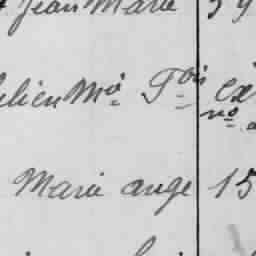 Jean Marie 59
Julien Mie Fois
no
Marie ange 15